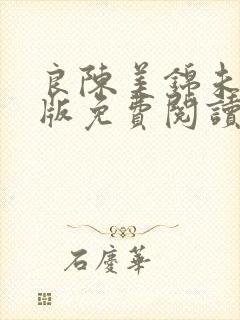 良陳美錦未
版免費閱讀
石慶華